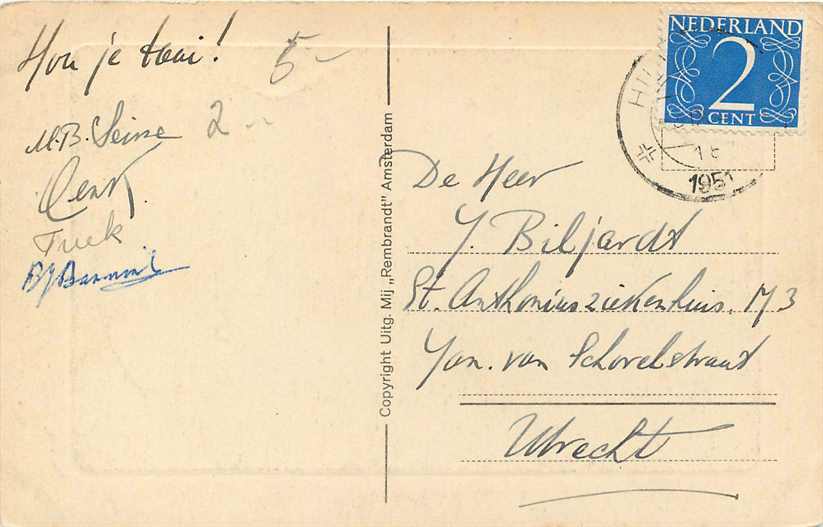 Hou je taai! 5-
M.B. Seine 2-
Tuck
Copyright Uitg. Mij „Rembrandt" Amsterdam
NEDERLAND
2
CENT
1951
De Heer
J. Biljardt
St. Anthoniusziekenhuis. M3
Jan. van Schorelstraat
Utrecht